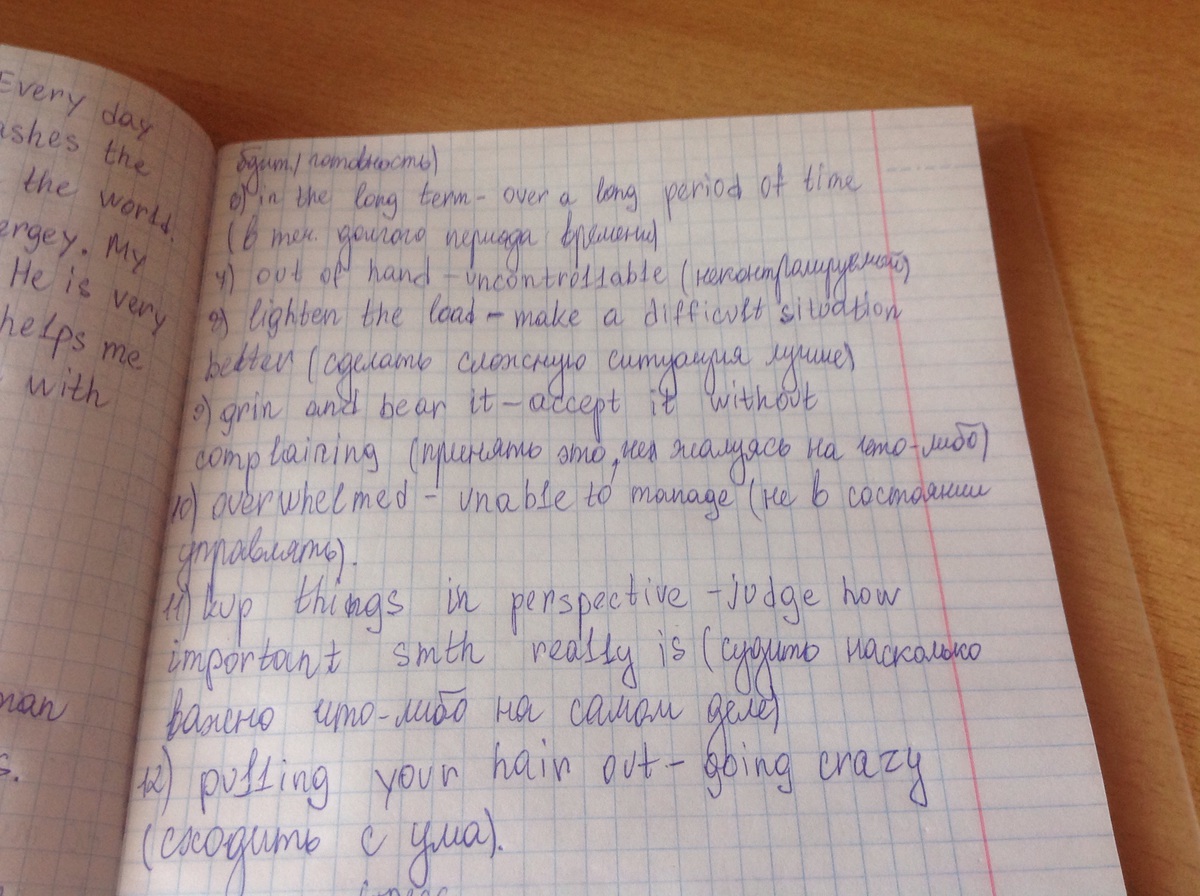 Every day
ashes the
the world.
ergey. My
He is very
helps me
with
man
s.
бдит./готовность)
6) in the long term - over a long period of time
(в теч. долгого периода времени)
7) out of hand - uncontrollable (неконтралируемый)
8) lighten the load - make a difficult situation
better (сделать сложную ситуация лучше)
9) grin and bear it - accept it without
complaining (принять это, не жалуясь на что-либо)
10) overwhelmed - unable to manage (не в состоянии
управлять).
11) kup things in perspective - judge how
important smth really is (судить насколько
важно что-либо на самом деле)
12) pulling your hair out - going crazy
(сходить с ума).